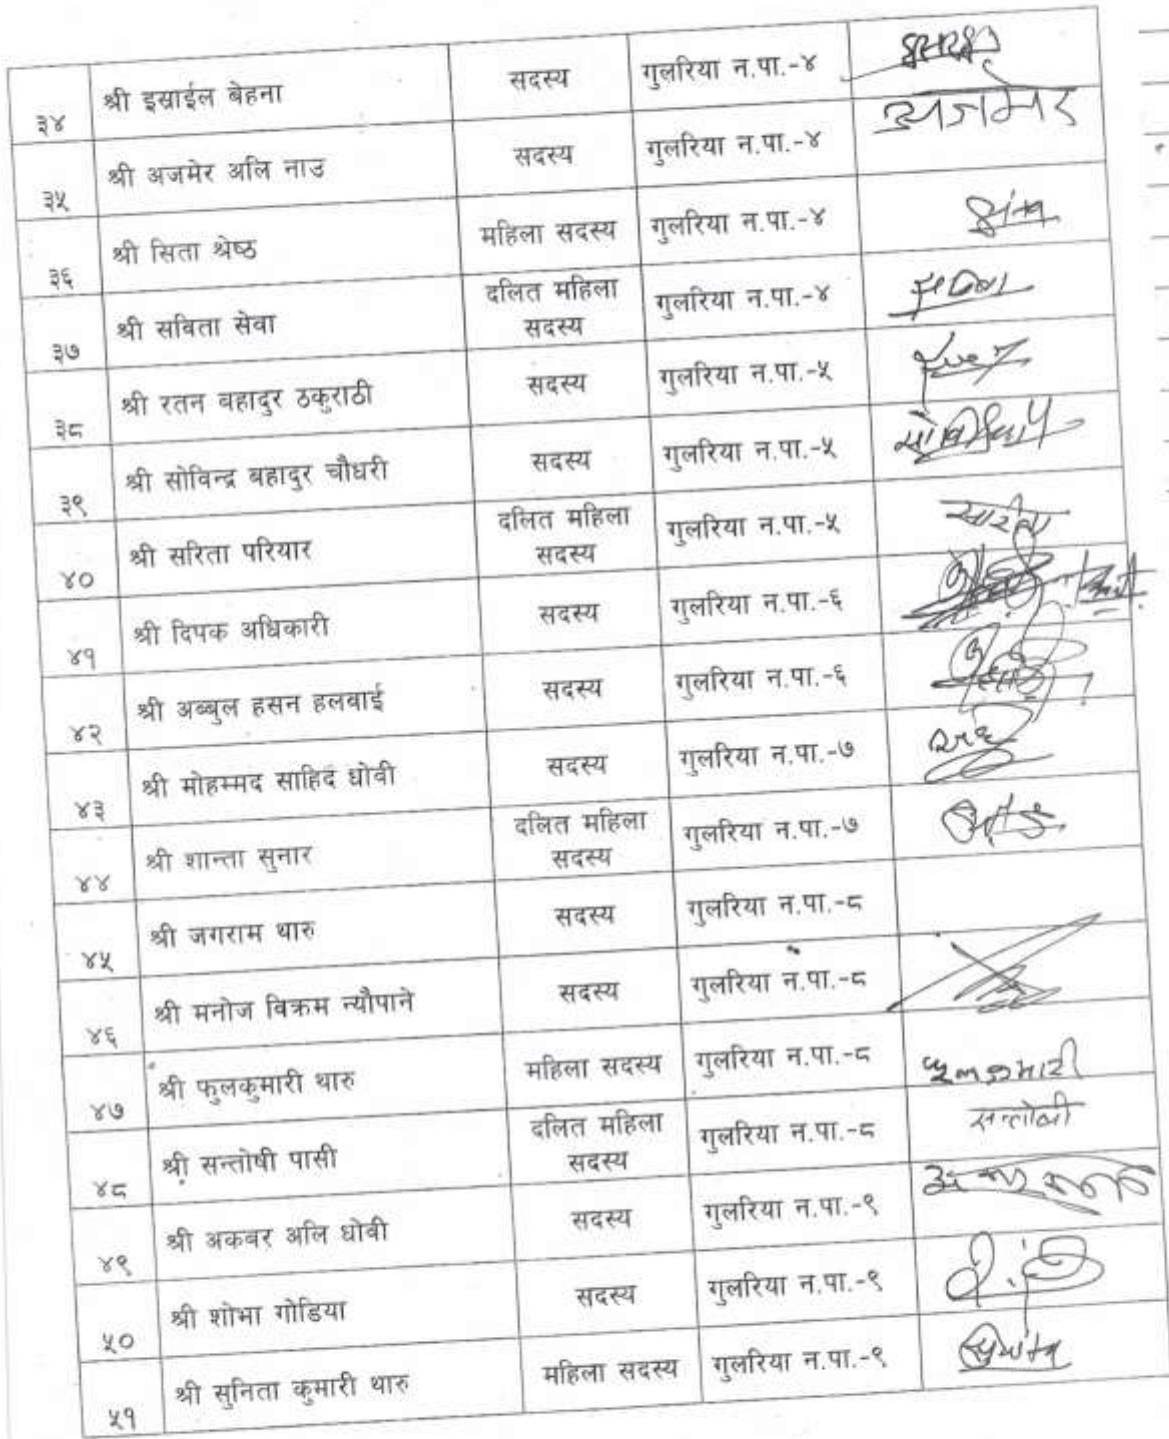 ३४ श्री इस्राईल बेहना सदस्य गुलरिया न.पा.-४
३५ श्री अजमेर अलि नाउ सदस्य गुलरिया न.पा.-४ अजमेर
३६ श्री सिता श्रेष्ठ महिला सदस्य गुलरिया न.पा.-४
३७ श्री सविता सेवा दलित महिला सदस्य गुलरिया न.पा.-४
३८ श्री रतन बहादुर ठकुराठी सदस्य गुलरिया न.पा.-५
३९ श्री सोविन्द्र बहादुर चौधरी सदस्य गुलरिया न.पा.-५
४० श्री सरिता परियार दलित महिला सदस्य गुलरिया न.पा.-५
४१ श्री दिपक अधिकारी सदस्य गुलरिया न.पा.-६
४२ श्री अब्बुल हसन हलवाई सदस्य गुलरिया न.पा.-६
४३ श्री मोहम्मद साहिद धोवी सदस्य गुलरिया न.पा.-७
४४ श्री शान्ता सुनार दलित महिला सदस्य गुलरिया न.पा.-७
४५ श्री जगराम थारु सदस्य गुलरिया न.पा.-८
४६ श्री मनोज विक्रम न्यौपाने सदस्य गुलरिया न.पा.-८
४७ श्री फुलकुमारी थारु महिला सदस्य गुलरिया न.पा.-८ फूलकुमारी
४८ श्री सन्तोषी पासी दलित महिला सदस्य गुलरिया न.पा.-८ सन्तोषी
४९ श्री अकबर अलि धोवी सदस्य गुलरिया न.पा.-९
५० श्री शोभा गोडिया सदस्य गुलरिया न.पा.-९
५१ श्री सुनिता कुमारी थारु महिला सदस्य गुलरिया न.पा.-९